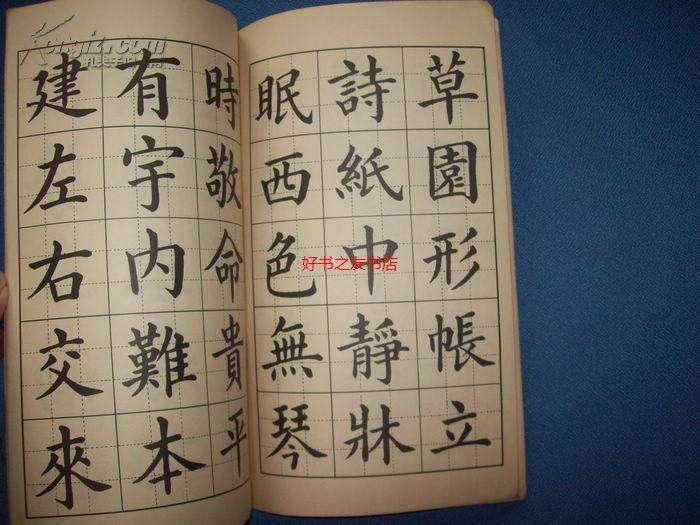 草園形帳立
詩紙中靜牀
眠西色無琴
時敬命貴平
有宇内難本
建左右交來
好书之友书店
Kongfz.com
孔夫子旧书网